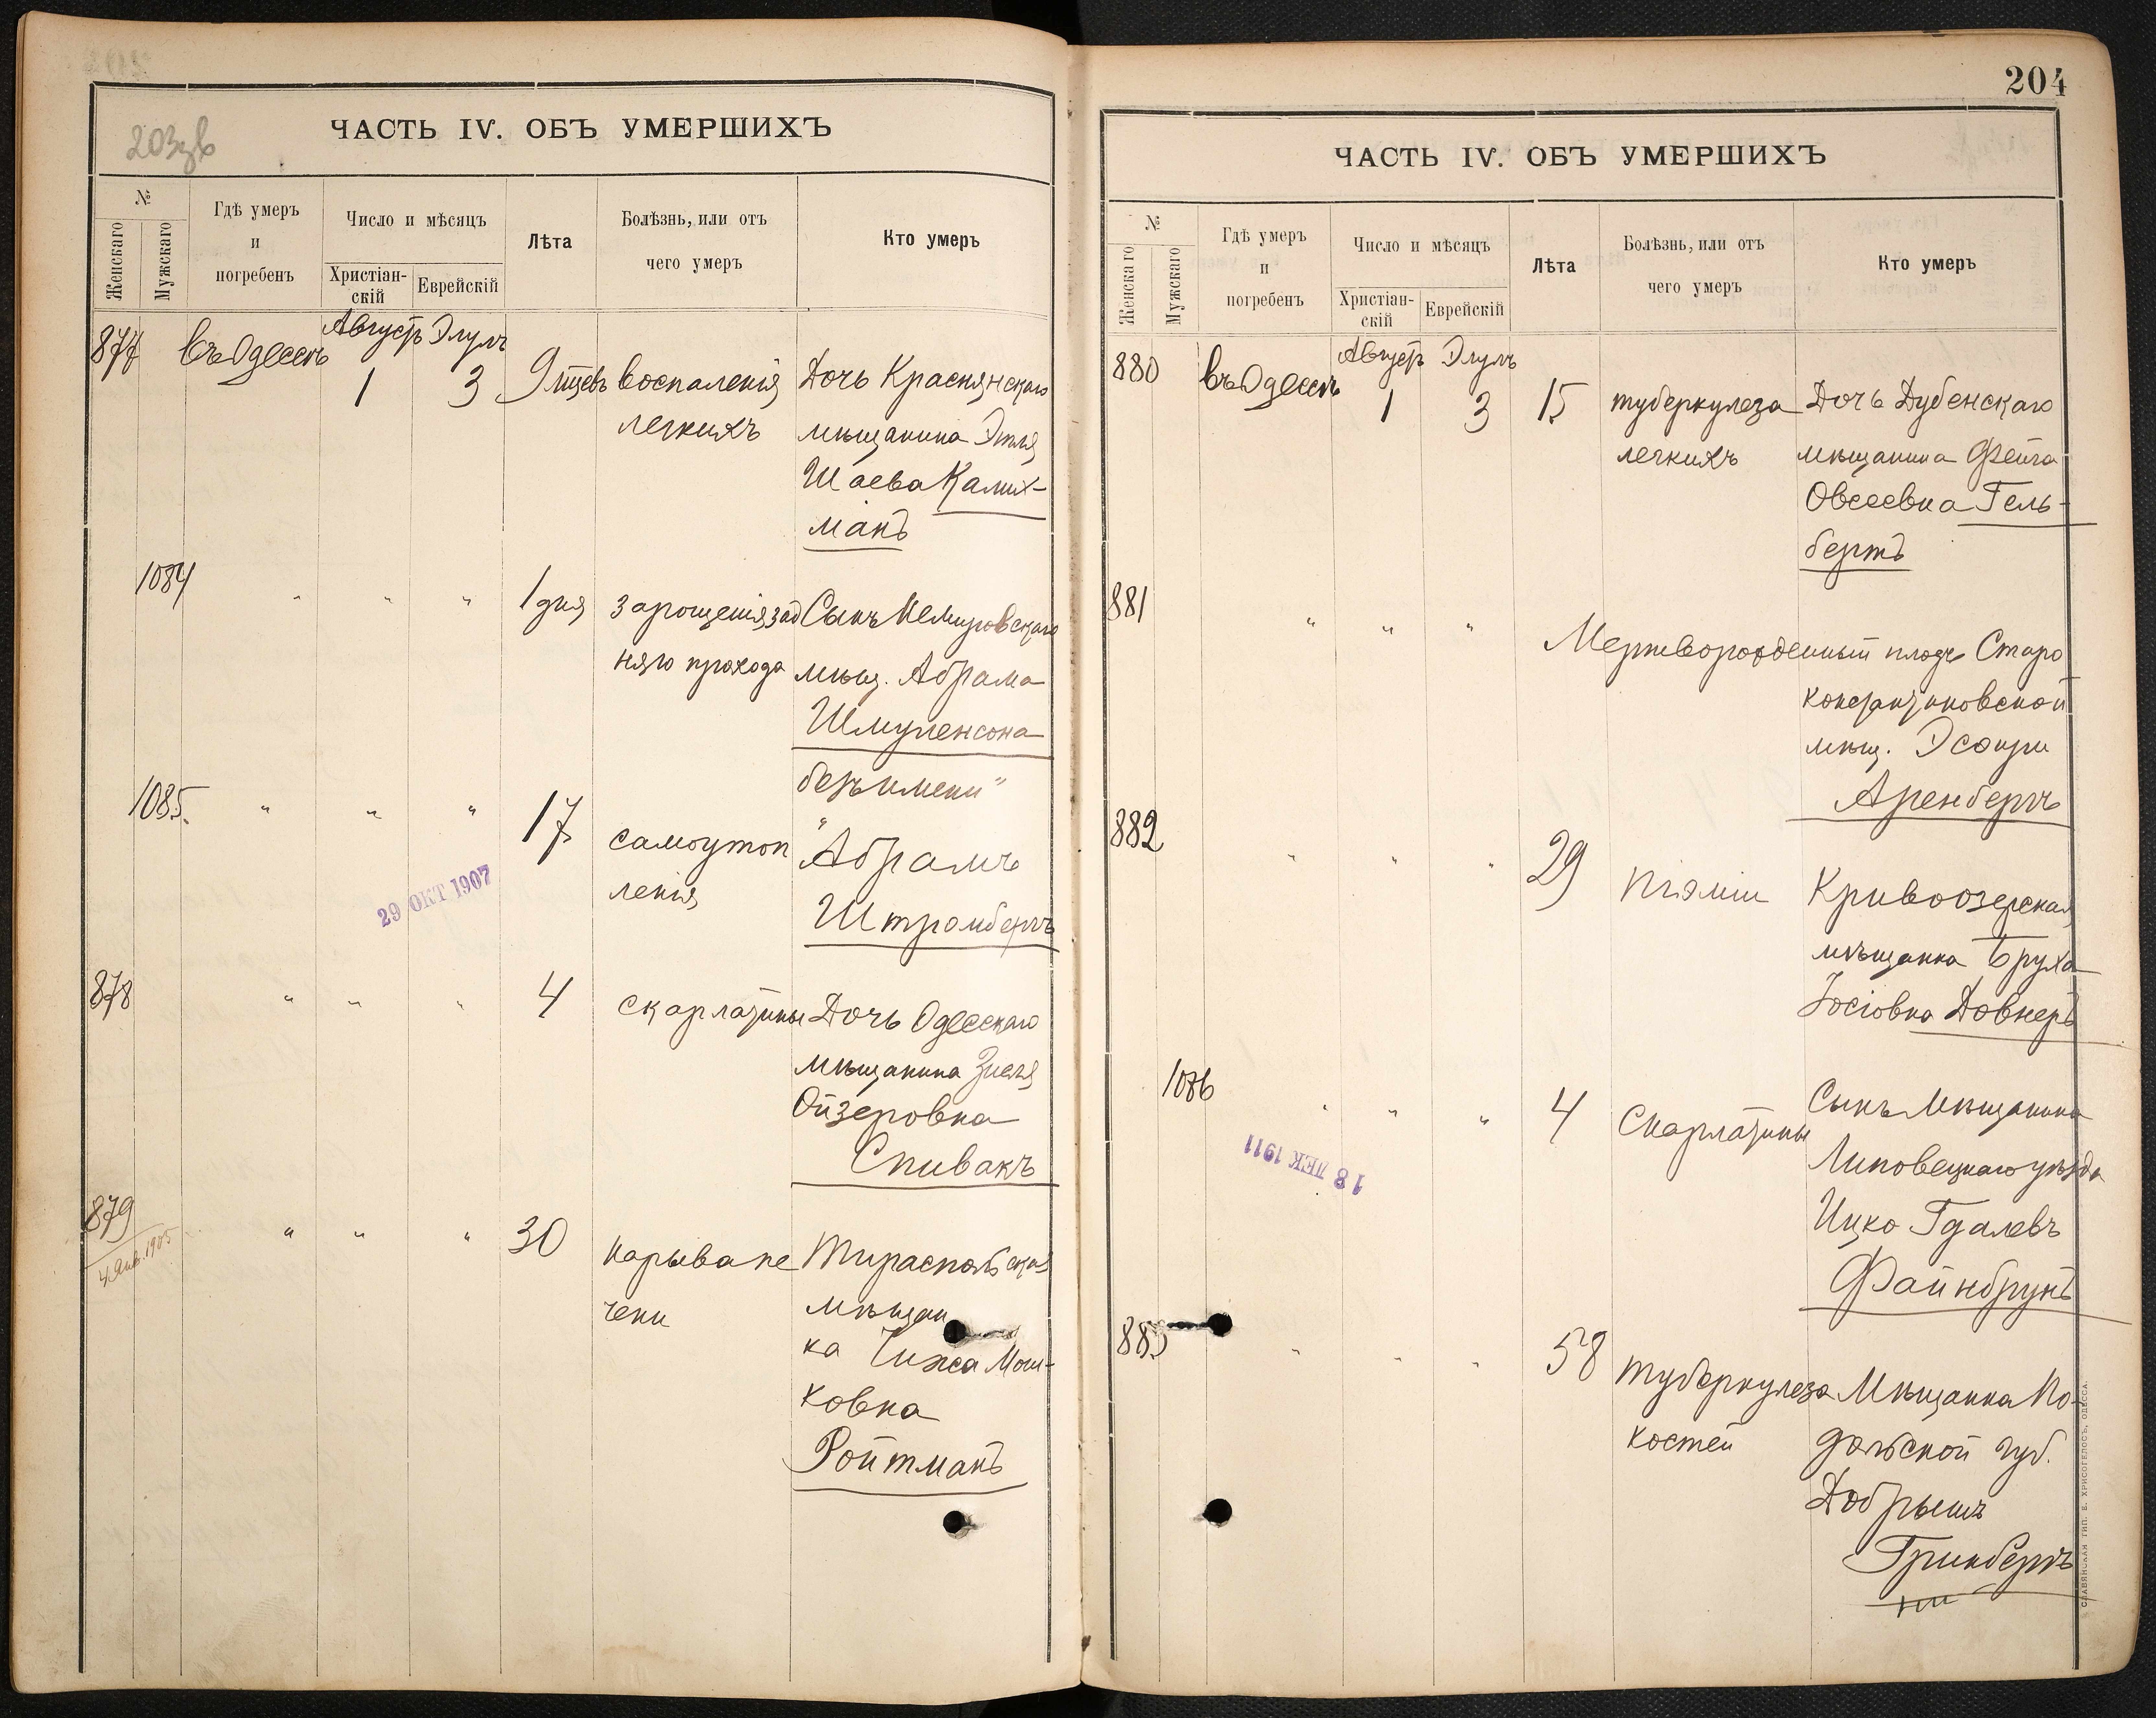 203зв
ЧАСТЬ IV. ОБЪ УМЕРШИХЪ
№
Женскаго
Мужскаго
Гдѣ умеръ
и
погребенъ
Число и мѣсяцъ
Христіан-
скій
Еврейскій
Лѣта
Болѣзнь, или отъ
чего умеръ
Кто умеръ
877 въ Одессѣ Августъ 1 Элулъ 3 9 мцевъ воспаленія Дочь Краснянскаго
легкихъ мѣщанина Этля
Шаева Калих-
манъ
1084 " " " 1 дня зарощенія зад Сынъ Немировскаго
няго прохода мѣщ. Абрама
Шмуленсона
"безъ имени"
1085. " " " 17 самоутоп Абрамъ
ленія Штромбергъ
29 ОКТ 1907
878 " " " 4 скарлатины Дочь Одесскаго
мѣщанина Зисля
Ойзеровна
Спивакъ
879 " " " 30 нарыва пе Тираспольская
4 Янв. 1905
чени мѣщан
ка Чижа Мош-
ковна
Ройтманъ
204
ЧАСТЬ IV. ОБЪ УМЕРШИХЪ
№
Женскаго
Мужскаго
Гдѣ умеръ
и
погребенъ
Число и мѣсяцъ
Христіан-
скій
Еврейскій
Лѣта
Болѣзнь, или отъ
чего умеръ
Кто умеръ
880 въ Одессѣ Августъ 1 Элулъ 3 15 туберкулеза Дочь Дубенскаго
легкихъ мѣщанина Фейга
Овсеевна Гель-
бертъ
881 " " " Мертворожденный плодъ Старо
константиновской
мѣщ. Эсфири
Аренбергъ
882 " " " 29 піэміи Кривоозерская
мѣщанка Бруха
Іосіовна Довнеръ
1086 " " " 4 Скарлатины Сынъ мѣщанина
Липовецкаго уѣзда
Ицко Гдалевъ
Файнбрунъ
18 ДЕК 1911
883 " " " 58 туберкулеза Мѣщанка По-
костей дольской губ.
Добрышъ
Гринбергъ
СЛАВЯНСКАЯ ТИП. Е. ХРИСОГЕЛОСЪ, ОДЕССА.